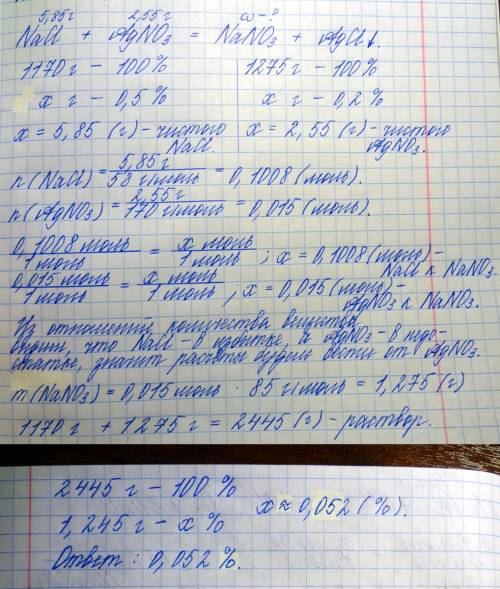 5,85г 2,55г ω-?
NaCl + AgNO₃ = NaNO₃ + AgCl↓.
1170г - 100% 1275г - 100%
x г - 0,5% x г - 0,2%
x = 5,85 (г) - чистого NaCl. x = 2,55 (г) - чистого AgNO₃.
n(NaCl) = 5,85г / 58 г/моль = 0,1008 (моль).
n(AgNO₃) = 2,55г / 170 г/моль = 0,015 (моль).
0,1008 моль / 1 моль = x моль / 1 моль ; x = 0,1008 (моль) - NaCl к NaNO₃.
0,015 моль / 1 моль = x моль / 1 моль ; x = 0,015 (моль) - AgNO₃ к NaNO₃.
Из отношений количества вещества
видим, что NaCl - в избытке, а AgNO₃ - в недо-
статке, значит расчёты будем вести от AgNO₃.
m(NaNO₃) = 0,015 моль · 85 г/моль = 1,275 (г)
1170 г + 1275 г = 2445 (г) - раствор.
2445 г - 100 %
1,245 г - x % x ≈ 0,052 (%).
Ответ: 0,052 %.